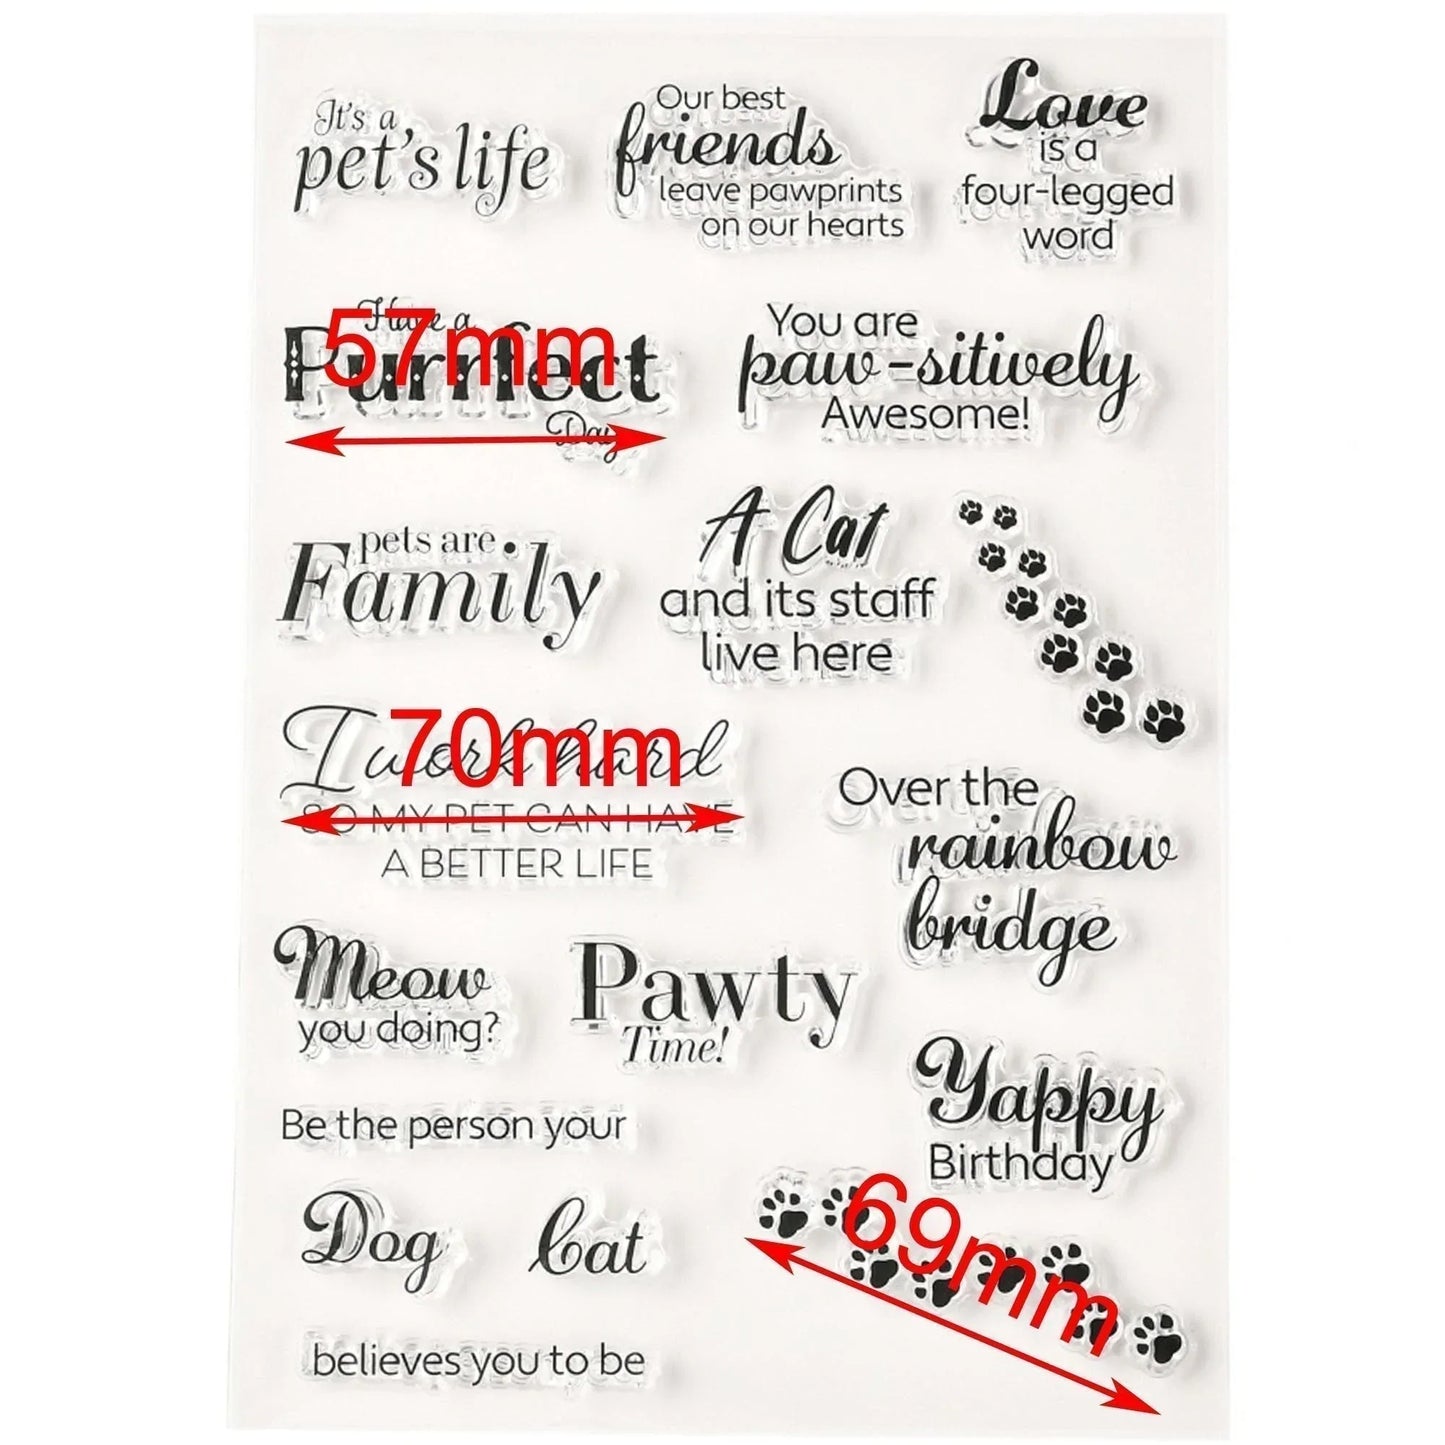 It's a
pet's life
Our best
friends
leave pawprints
on our hearts
Love
is a
four-legged
word
Have a
57mm
Purrfect
Day
You are
paw-sitively
Awesome!
pets are
Family
A Cat
and its staff
live here
I work hard
70mm
SO MY PET CAN HAVE
A BETTER LIFE
Over the
rainbow
bridge
Meow
you doing?
Pawty
Time!
Yappy
Birthday
Be the person your
Dog
Cat
believes you to be
69mm